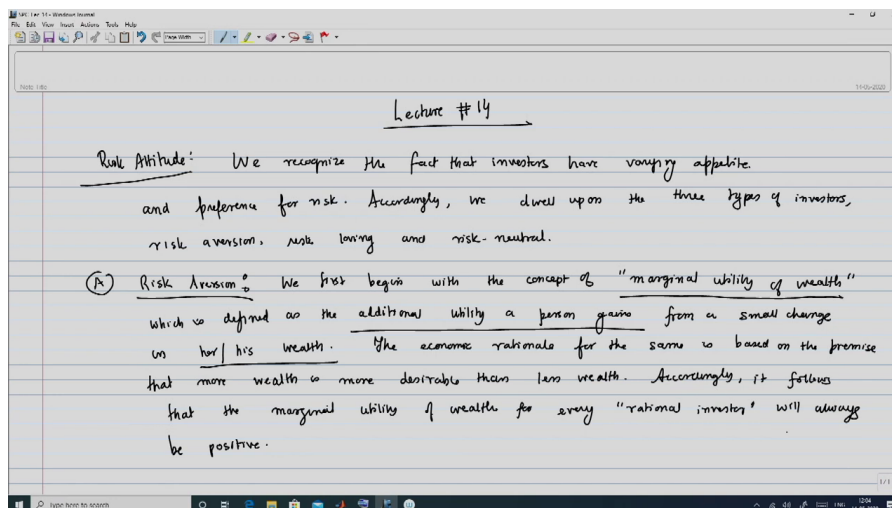 SPC Lec 14 - Windows Journal
File Edit View Insert Actions Tools Help
Page Width
Note Title
14-05-2020
Lecture #14
Risk Attitude: We recognize the fact that investors have varying appetite.
and preference for risk. Accordingly, we dwell upon the three types of investors,
risk aversion, risk loving and risk-neutral.
(A) Risk Aversion: We first begin with the concept of "marginal utility of wealth"
which is defined as the additional utility a person gains from a small change
in her/his wealth. The economic rationale for the same is based on the premise
that more wealth is more desirable than less wealth. Accordingly, it follows
that the marginal utility of wealth for every "rational investor" will always
be positive.
1/1
Type here to search
ENG
12:04